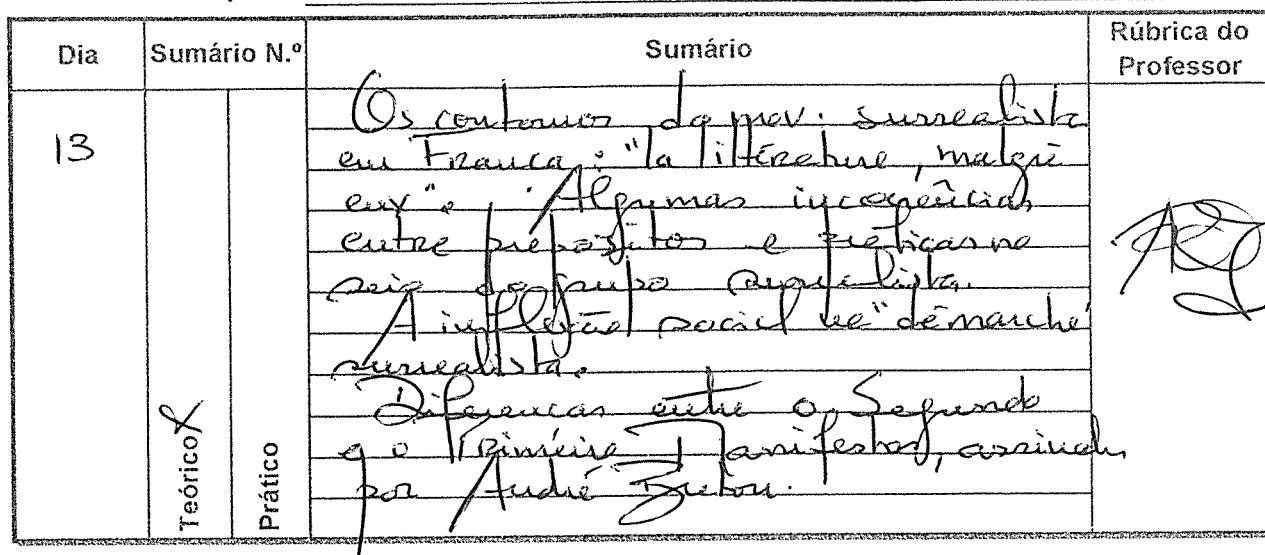 Dia
Sumário N.º
Sumário
Rúbrica do
Professor
13
Os contornos do mov. surrealista
em França: "la littérature, malgré
eux". Algumas incoerências
entre propósitos e práticas no
seio do grupo surrealista.
A inflexão social na "démarche"
surrealista.
Diferenças entre o Segundo
e o Primeiro Manifestos, assinados
por André Breton.
Teórico X
Prático